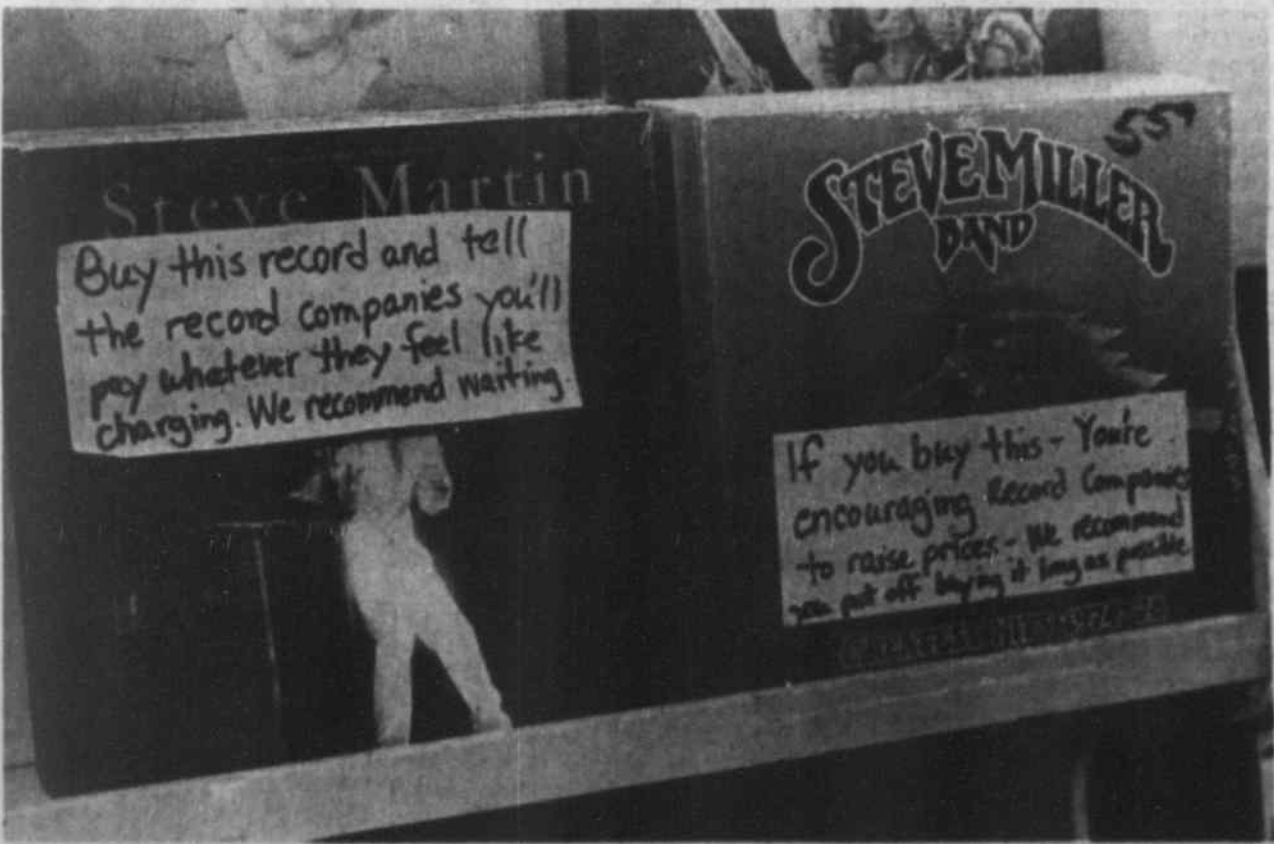 Steve Martin
Buy this record and tell
the record companies you'll
pay whatever they feel like
charging. We recommend waiting.
STEVE MILLER
BAND
559
If you buy this - You're
encouraging Record Companies
to raise prices - We recommend
you put off buying it long as possible
GREATEST HITS 1974-78